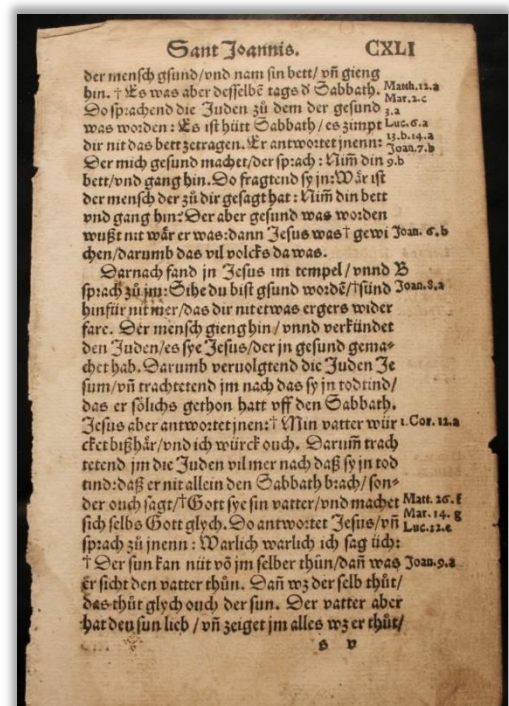 Sant Joannis. CXLI
der mensch gsund/vnd nam sin bett/ vñ gieng
hin. † Es was aber desselbē tags d Sabbath. Matth.12.a
Do sprachend die Juden zů dem der gesund Mar.2.c 3.a
was worden: Es ist hütt Sabbath/ es zimpt Luc.6.a
dir nit das bett zetragen. Er antwortet jnenn: 13.b.14.a Joan.7.b
Der mich gesund machet/der sprach: Nim̄ din 9.b
bett/vnd gang hin. Do fragtend sy jn: Wår ist
der mensch der zů dir gesagt hat: Nim̄ din bett
vnd gang hin? Der aber gesund was worden
wußt nit wår er was: dann Jesus was † gewi Joan. 6.b
chen/darumb das vil volcks da was.
Darnach fand jn Jesus im tempel/ vnnd B
sprach zů jm: Sihe du bist gsund wordē/ †sünd Joan.8.a
hinfür nit mer/das dir nit etwas ergers wider
fare. Der mensch gieng hin/ vnnd verkündet
den Juden/es sye Jesus/der jn gesund gema-
chet hab. Darumb veruolgtend die Juden Je
sum/vñ trachtetend jm nach das sy jn todtind/
das er sölichs gethon hatt vff den Sabbath.
Jesus aber antwortet jnen: † Min vatter wür 1.Cor. 12.a
cket bißhår/vnd ich würck ouch. Darum̄ trach
tetend jm die Juden vil mer nach daß sy jn tod
tind: daß er nit allein den Sabbath brach/ son-
der ouch sagt/ †Gott sye sin vatter/vnd machet Matt. 26.f
sich selbs Gott glych. Do antwortet Jesus/vñ Mar. 14. g Luc.22.e
sprach zů jnenn: Warlich warlich ich sag üch:
† Der sun kan nüt vō jm selber thůn/dañ was Joan.9.a
er sicht den vatter thůn. Dañ wz der selb thůt/
das thůt glych ouch der sun. Der vatter aber
hat den sun lieb / vñ zeiget jm alles wz er thůt/
s v